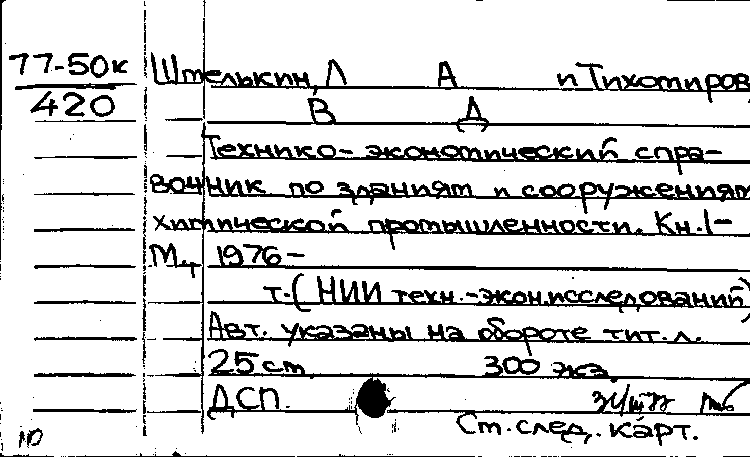 77-50к Штелькин, Л А и Тихомиров,
420 В Д
Технико-экономический спра-
вочник по зданиям и сооружениям
химической промышленности. Кн.1-
М., 1976-
т.(НИИ техн.-экон.исследований)
Авт. указаны на обороте тит.л.
25 см 300 экз.
ДСП.
Ст.след.карт.